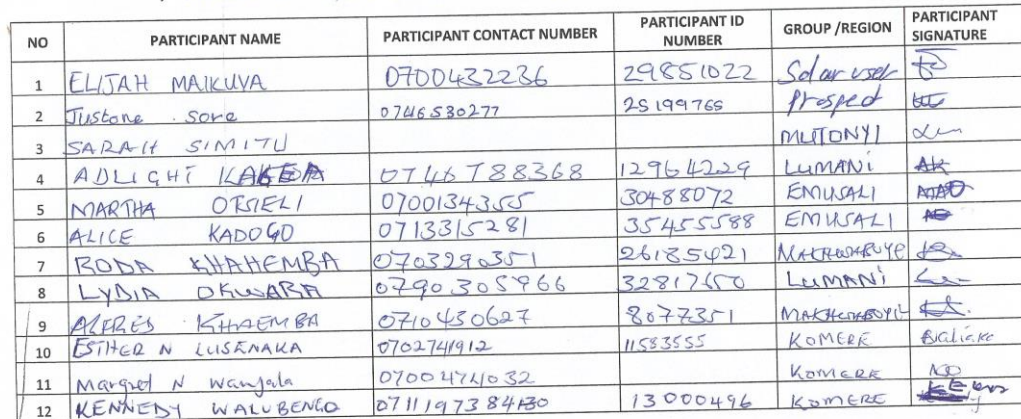 NO PARTICIPANT NAME PARTICIPANT CONTACT NUMBER PARTICIPANT ID NUMBER GROUP /REGION PARTICIPANT SIGNATURE
1 ELIJAH MAIKUVA 0700432236 29851022 Solar user
2 Justone Sore 0746530277 25199765 Prospect
3 SARAH SIMITU MUTONYI
4 ADLIGHT 0746788368 12964229 LUMANI AK
5 MARTHA OTSIELI 0700134355 30488072 EMUSALI
6 ALICE KADOGO 0713315281 35455588 EMUSALI
7 RODA KHAHEMBA 0703290351 26185421
8 LYDIA OKWARA 0790305966 32817650 LUMANI
9 ALFRED KHAEMBA 0710430627 8077351
10 ESTHER N LUSENAKA 0702741912 11583555 KOMERE
11 Margret N Wanjala 0700474032 KOMERE
12 KENNEDY WALUBENGO 13000496 KOMERE